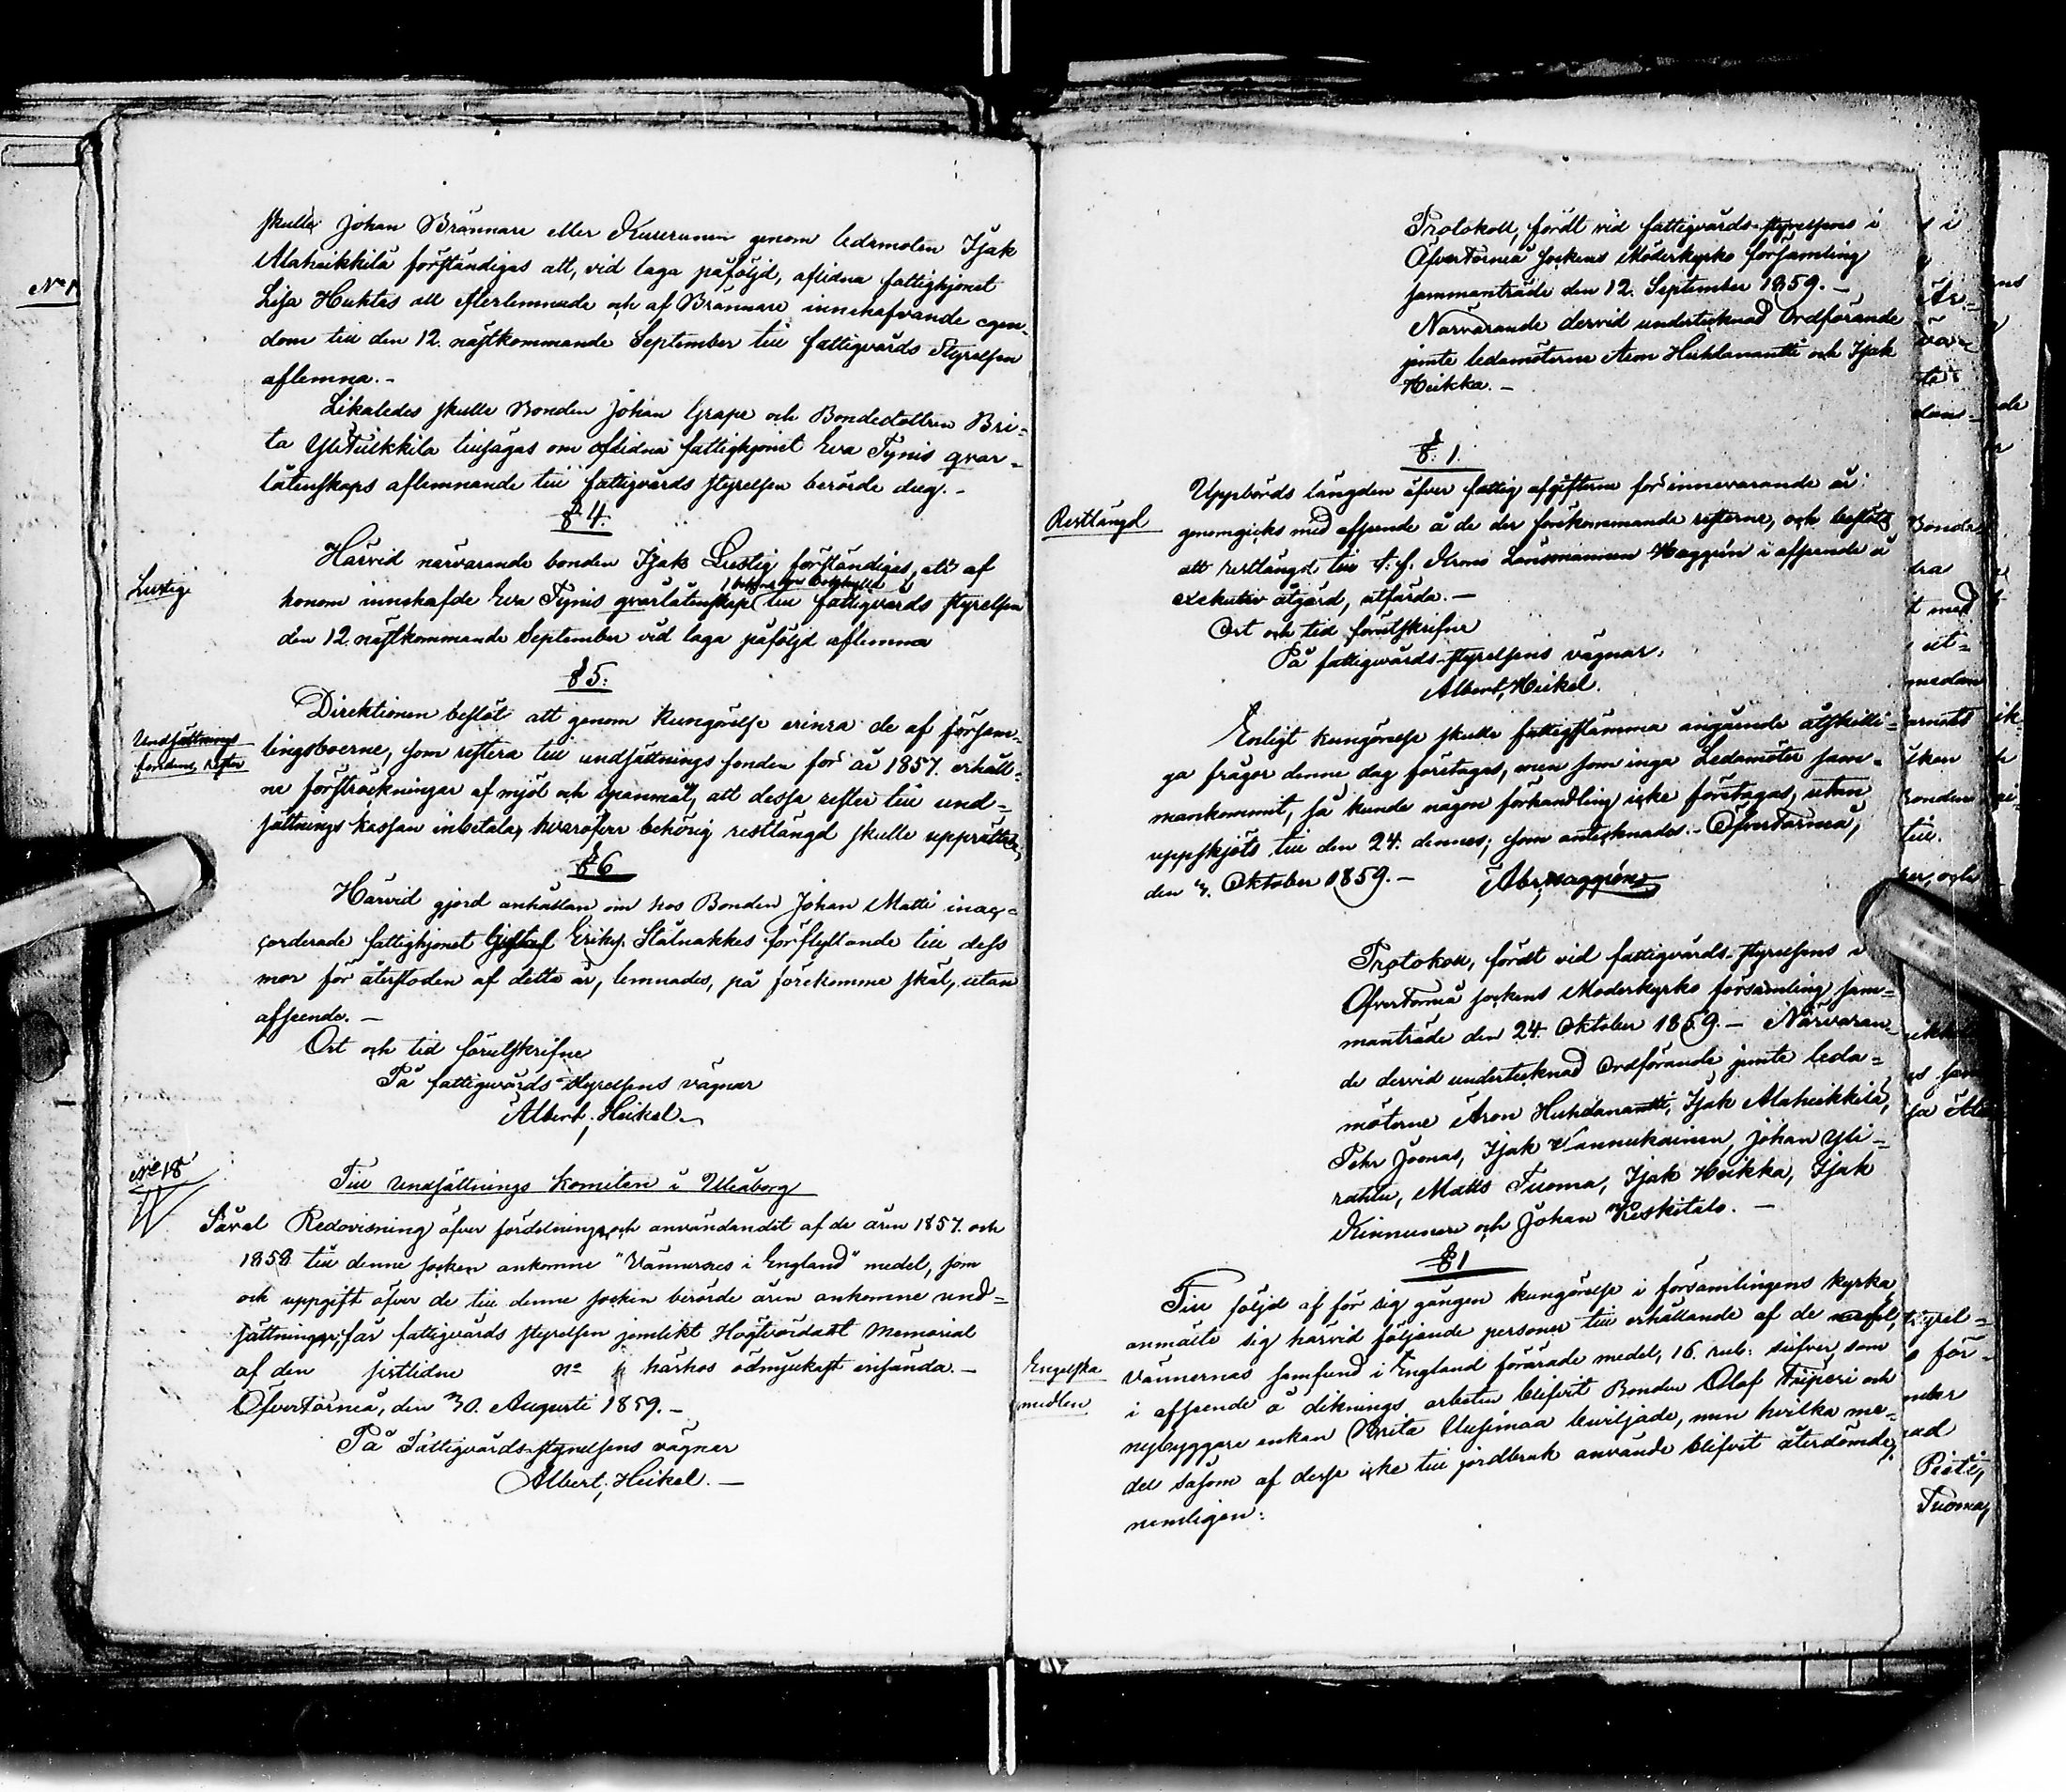 skulle Johan Brännare eller Kuurunen genom ledamoten Isak
Alaheikkilä förständigas att, vid laga påföljd, aflidna fattighjonet
Lisa Huktas all efterlemnade och af Brännare innehafvande egen-
dom till den 12. nästkommande September till fattigvårds Styrelsen
aflemna.-
Likaledes skulle Bonden Johan Grape och Bondedottren Bri-
ta Yli tillsägas om aflidna fattighjonet Eva Tynis qvar-
låtenskaps aflemnande till fattigvårds styrelsen berörde dag.-
§ 4.
Lustig
Härvid närvarande bonden Isak Lustig förständigas, att af
honom innehafde Eva Tynis qvarlåtenskap till fattigvårds styrelsen
den 12. nästkommande September vid laga påföljd aflemna
§ 5:
Undsättnings
fondens rester
Direktionen beslöt att genom kungörelse erinra de af försam-
lingsboerne, som restera till undsättnings fonden för år 1857. erhåll-
ne försträckningar af mjöl och spanmål, att dessa rester till und-
sättnings kassan inbetala, hvaröfver behörig restlängd skulle upprättas,
§ 6
Härvid gjord anhållan om hos Bonden Johan Matti inac-
corderade fattighjonet Gustaf Eriks. Stålnakkes förflyttande till dess
mor för återstoden af detta år, lemnades, på förekomne skäl, utan
afseende. -
Ort och tid förutskrifne
På fattigvårds Styrelsens vägnar
Albert, Heikel
No 18
Till Undsättnings Komitén i Uleåborg
Såväl Redovisning öfver fördelning och användandet af de åren 1857. och
1858 till denne socken ankomne "Vännernes i England" medel, som
och uppgift öfver de till denne socken berörde åren ankomne und-
sättningar, får fattigvårds styrelsen jemlikt Högtvördadt Memorial
af den sistlidne No härhos ödmjukast insända.-
ÖfverTorneå, den 30. Augusti 1859.-
På Fattigvårds-styrelsens vägnar
Albert, Heikel.-
Protokoll, fördt vid fattigvårds-styrelsens i
ÖfverTorneå sockens Moderkyrko församling
sammanträde den 12. September 1859.-
Närvarande dervid undertecknad Ordförande
jemte ledamöterne Aron Huhdanantti och Isak
Heikka.-
§ 1.
Restlängd
Uppbörds längden öfver fattig afgifterne för innevarande år
genomgicks med afseende å de der förekommande resterne, och beslöts
att restlängd till t. f. Krono Länsmannen Haggrén i afseende å
exekutiv åtgärd, utfärda.-
Ort och tid förutskrifne
På fattigvårds-styrelsens vägnar.
Albert, Heikel.
Enligt kungörelse skulle fattigstämma angående åtskilli-
ga frågor denne dag företagas, men som inga Ledamöter sam-
mankommit, så kunde någon förhandling icke företagas, utan
uppskjöts till den 24. dennes; som antecknades.- ÖfverTorneå,
den 3. Oktober 1859.-
Protokoll, fördt vid fattigvårds-styrelsens i
ÖfverTorneå sockens Moderkyrko församling sam-
manträde den 24. Oktober 1859.- Närvaran-
de dervid undertecknad Ordförande jemte leda-
möterne Aron Huhdanantti, Isak Alaheikkilä,
Pehr Joonas, Isak Vannukainen, Johan Yli-
rahtu, Matts Tuoma, Isak Heikka, Isak
Kinnunen och Johan Keskitalo.-
§ 1
Engelska
medlen
Till följd af för sig gången kungörelse i församlingens kyrka
anmälte sig härvid följande personer till erhållande af de
Vännernas samfund i England förärade medel, 16. rub: silfver, som
i afseende å diknings arbeten blifvit Bonden Olof och
nybyggare enkan Brita Uusimaa beviljade, men hvilka me-
del såsom af desse icke till jordbruk använde blifvit återdömde,
nemligen: